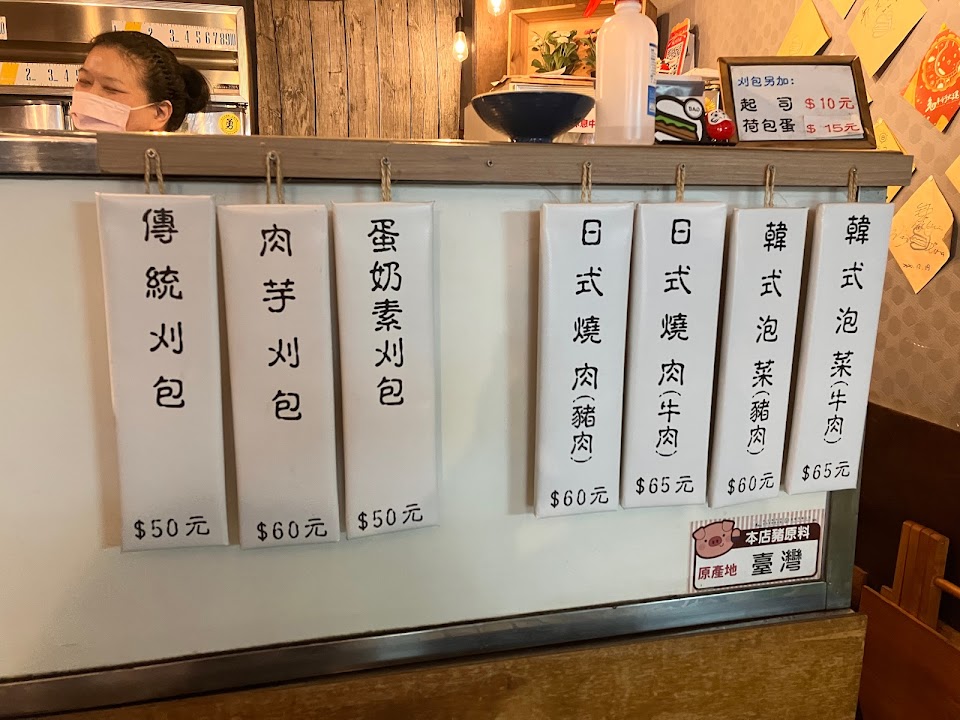 傳統刈包
$50元
肉芋刈包
$60元
蛋奶素刈包
$50元
日式燒肉(豬肉)
$60元
日式燒肉(牛肉)
$65元
韓式泡菜(豬肉)
$60元
韓式泡菜(牛肉)
$65元
刈包另加:
起司 $10元
荷包蛋 $15元
本店豬原料
原產地 臺灣